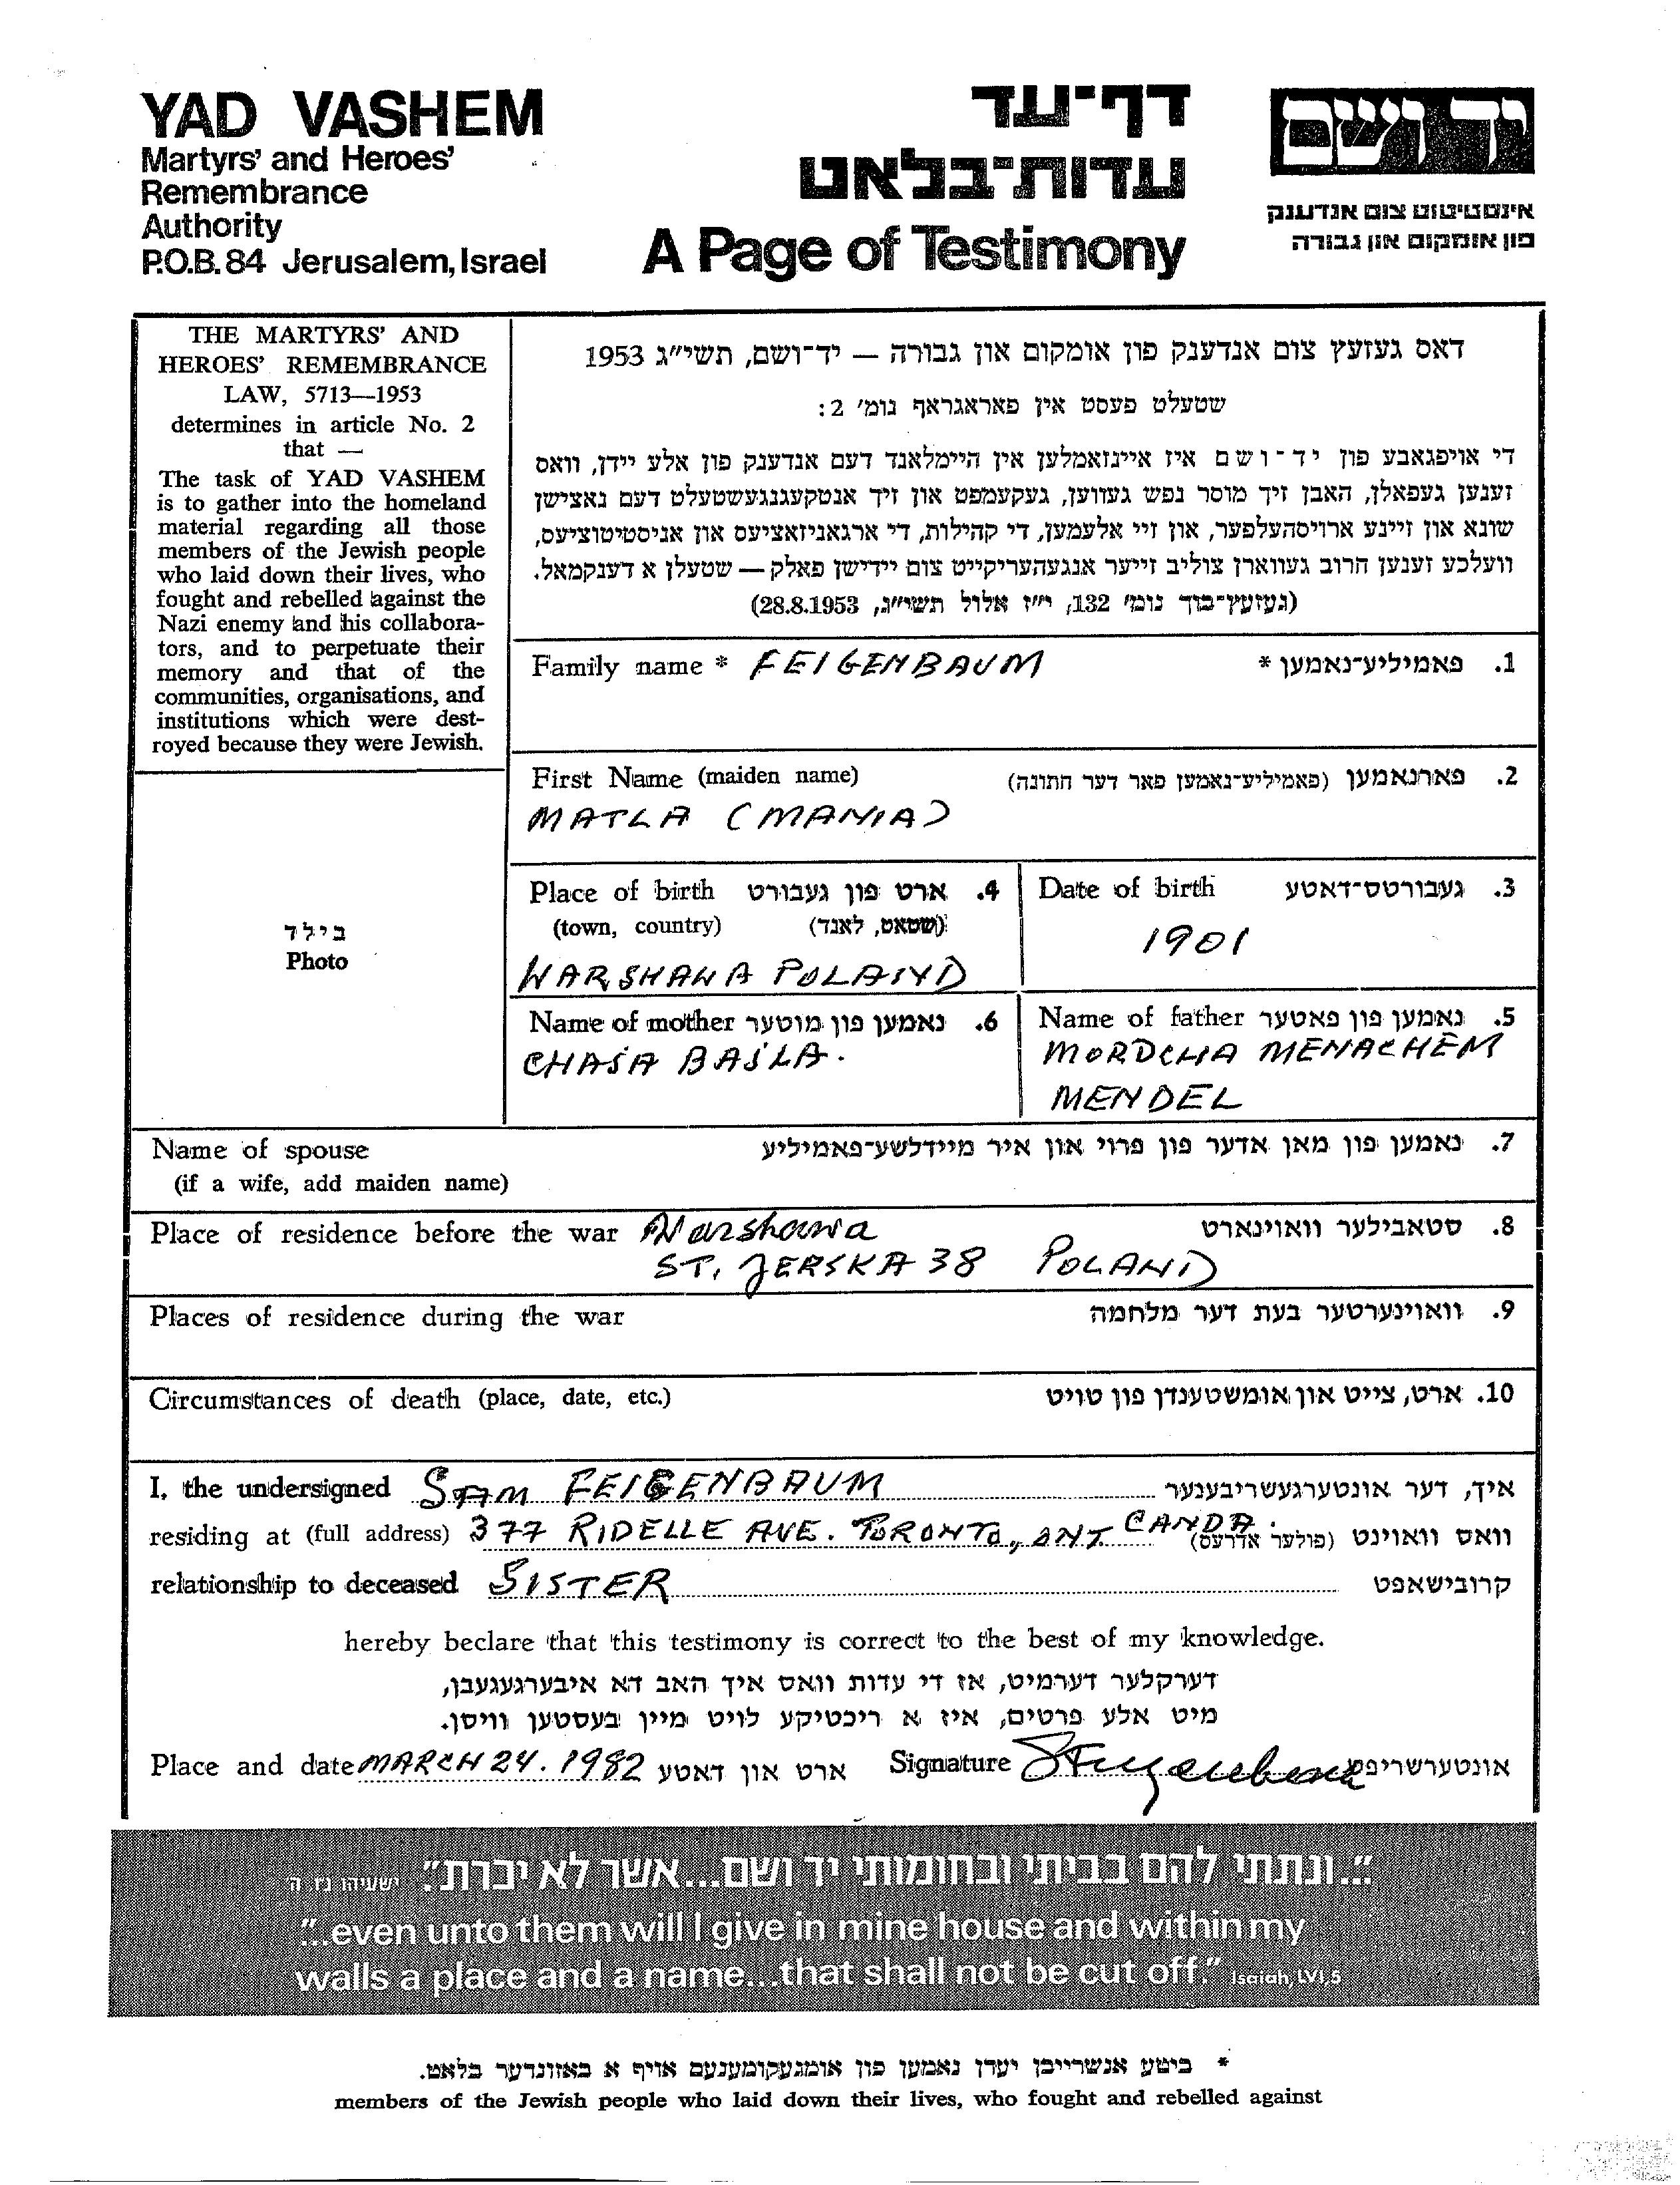 YAD VASHEM
Martyrs' and Heroes'
Remembrance
Authority
P.O.B. 84 Jerusalem, Israel
דף־עד
עדות־בלאט
A Page of Testimony
יד ושם
אינסטיטוט צום אנדענק
פון אומקום און גבורה
THE MARTYRS' AND
HEROES' REMEMBRANCE
LAW, 5713—1953
determines in article No. 2
that —
The task of YAD VASHEM
is to gather into the homeland
material regarding all those
members of the Jewish people
who laid down their lives, who
fought and rebelled against the
Nazi enemy and his collabora-
tors, and to perpetuate their
memory and that of the
communities, organisations, and
institutions which were dest-
royed because they were Jewish.
דאס געזעץ צום אנדענק פון אומקום און גבורה — יד־ושם, תשי"ג 1953
שטעלט פעסט אין פאראגראף נומ' 2:
די אויפגאבע פון יד־ושם איז איינזאמלען אין היימלאנד דעם אנדענק פון אלע יידן, וואס
זענען געפאלן, האבן זיך מוסר נפש געווען, געקעמפט און זיך אנטקעגנגעשטעלט דעם נאצישן
שונא און זיינע ארויסהעלפער, און זיי אלעמען, די קהילות, די ארגאניזאציעס און אניסטיטוציעס,
וועלכע זענען חרוב געווארן צוליב זייער אנגעהעריקייט צום יידישן פאלק — שטעלן א דענקמאל.
(געזעץ־בוך נומ' 132, י"ז אלול תשי"ג, 28.8.1953)
Family name * FEIGENBAUM 1. פאמיליע־נאמען *
First Name (maiden name) 2. פארנאמען (פאמיליע־נאמען פאר דער חתונה)
MATLA (MANIA)
Place of birth 4. ארט פון געבורט
(town, country) (שטאט, לאנד)
WARSHAWA POLAND
Date of birth 3. געבורטס־דאטע
1901
Name of mother 6. נאמען פון מוטער
CHAJA BAJLA.
Name of father 5. נאמען פון פאטער
MORDCHA MENACHEM
MENDEL
ביל ד
Photo
Name of spouse 7. נאמען פון מאן אדער פון פרוי און איר מיידלשע־פאמיליע
(if a wife, add maiden name)
Place of residence before the war Warshawa 8. סטאבילער וואוינארט
ST. JERSKA 38 POLAND
Places of residence during the war 9. וואוינערטער בעת דער מלחמה
Circumstances of death (place, date, etc.) 10. ארט, צייט און אומשטענדן פון טויט
I, the undersigned SAM FEIGENBAUM איך, דער אונטערגעשריבענער
residing at (full address) 377 RIDELLE AVE. TORONTO, ONT. CANDA. וואס וואוינט (פולער אדרעס)
relationship to deceased SISTER קרובישאפט
hereby beclare that this testimony is correct to the best of my knowledge.
דערקלער דערמיט, אז די עדות וואס איך האב דא איבערגעגעבן,
מיט אלע פרטים, איז א ריכטיקע לויט מיין בעסטען וויסן.
Place and date MARCH 24. 1982 ארט און דאטע Signature SFeigenbaum אונטערשריפט
"...ונתתי להם בביתי ובחומותי יד ושם...אשר לא יכרת." ישעיהו נ"ו ה'
"...even unto them will I give in mine house and within my
walls a place and a name...that shall not be cut off." Isaiah, LVI,5
* ביטע אנשרייבן יעדן נאמען פון אומגעקומענעם אויף א באזונדער בלאט.
members of the Jewish people who laid down their lives, who fought and rebelled against